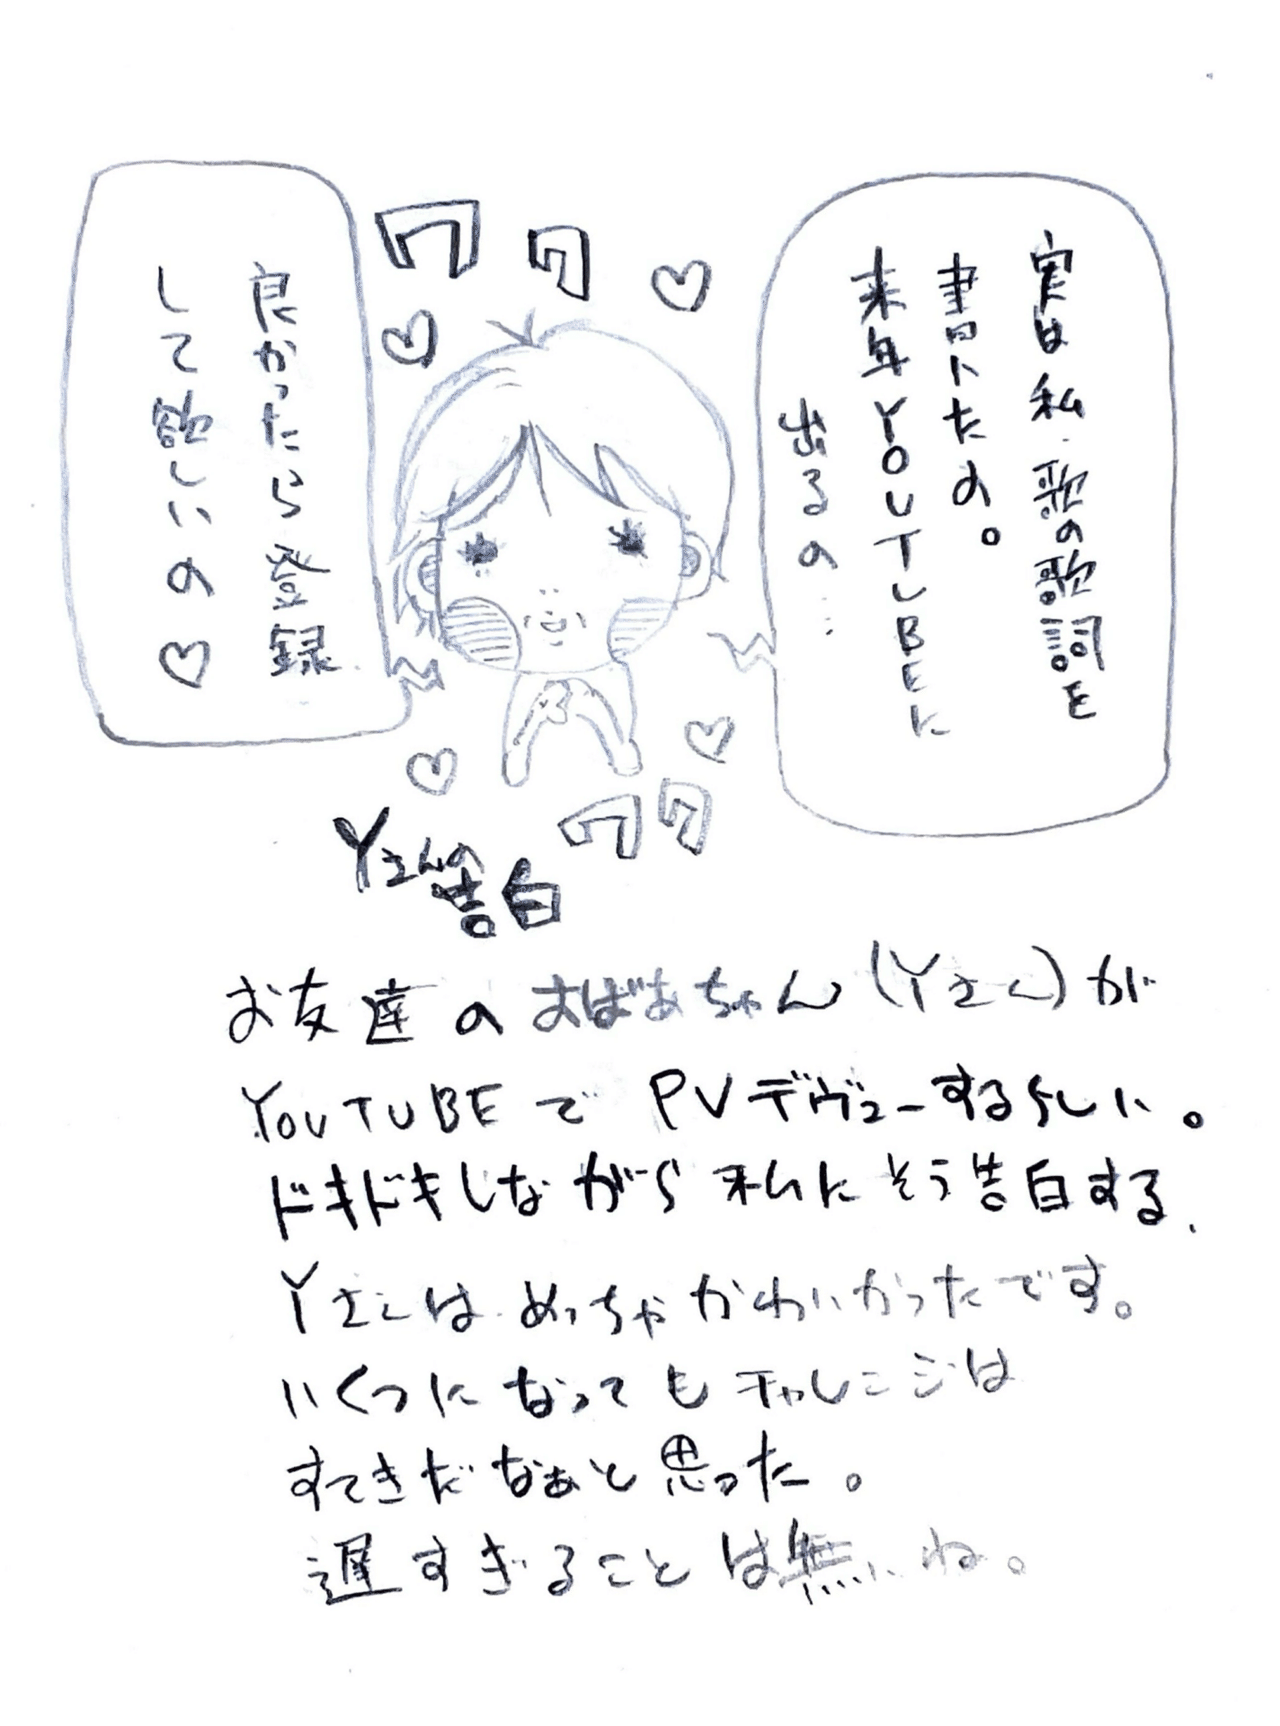 実は私、歌の歌詞を
書いたの。
来年YOUTUBEに
出るの…
ワク
良かったら登録
して欲しいの♡
ワク
Yさんの
告白
お友達のおばあちゃん(Yさん)が
YOUTUBEでPVデヴューするらしい。
ドキドキしながら私にそう告白する、
Yさんはめっちゃかわいかったです。
いくつになってもチャレンジは
すてきだなぁと思った。
遅すぎることは無いね。